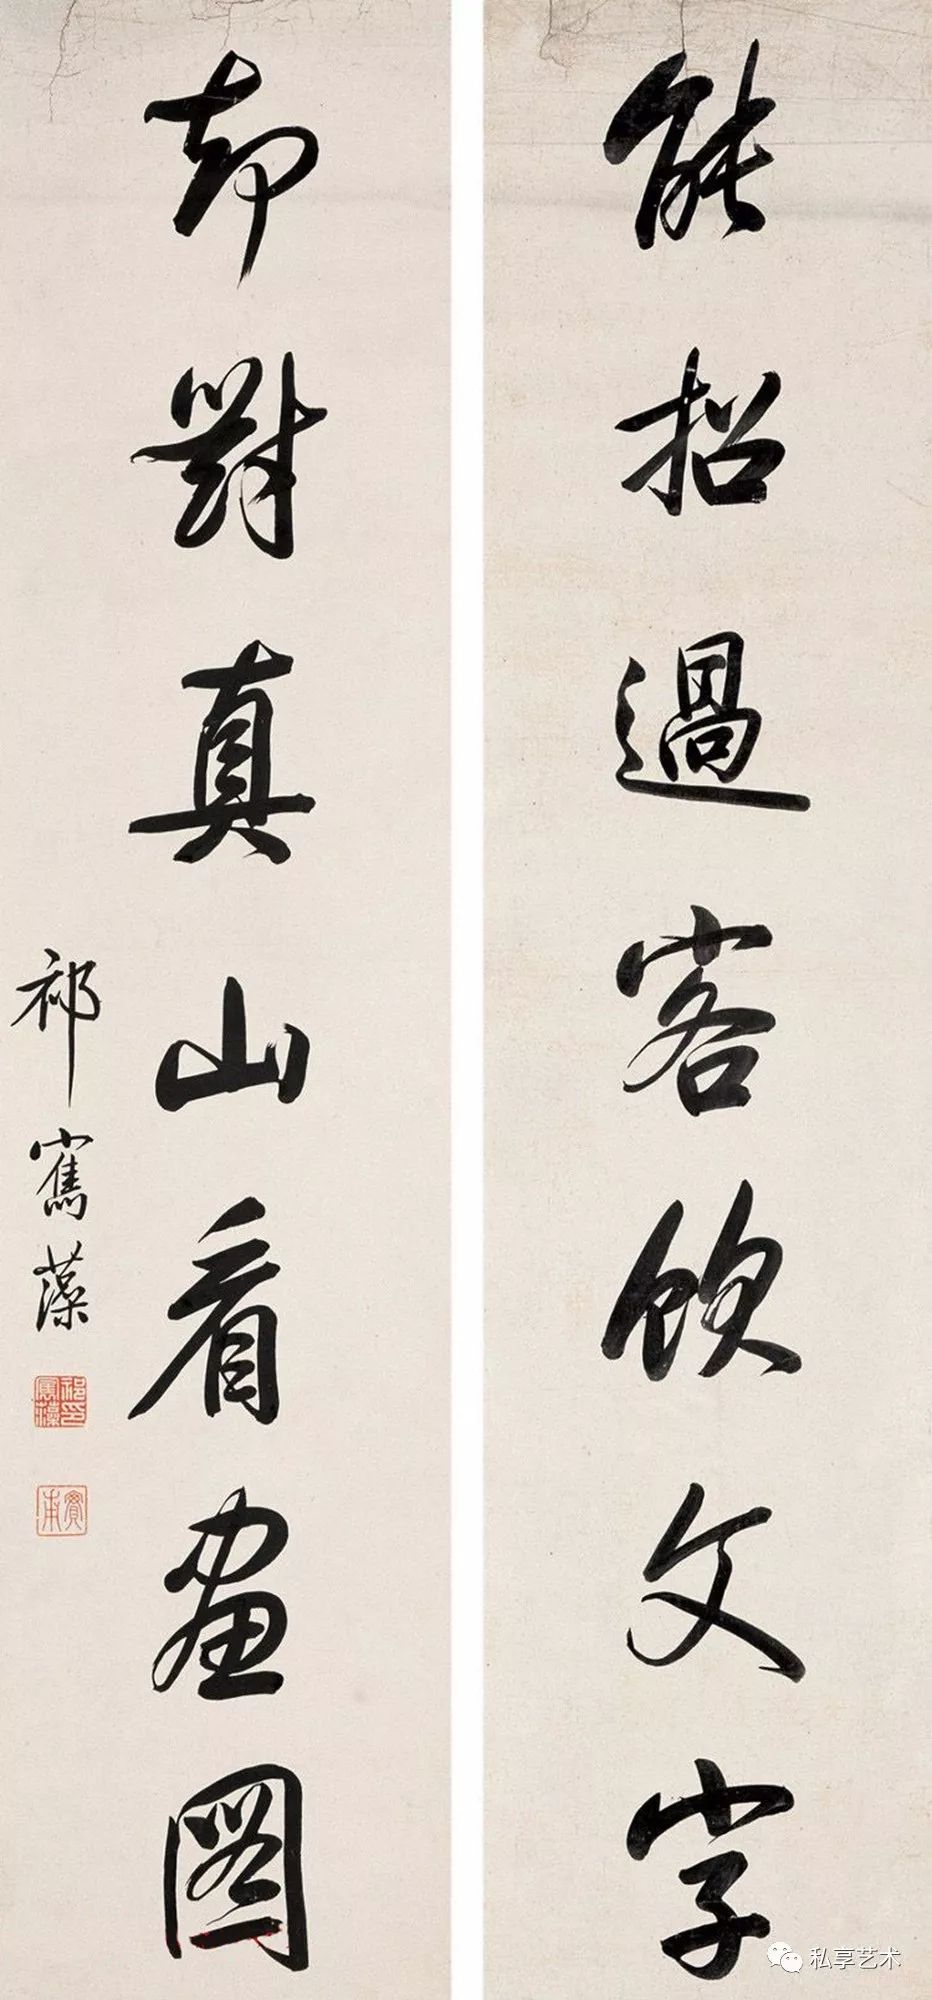 能招過客飲文字
却對真山看畫圖
祁寯藻
祁寯藻印
實甫
私享艺术